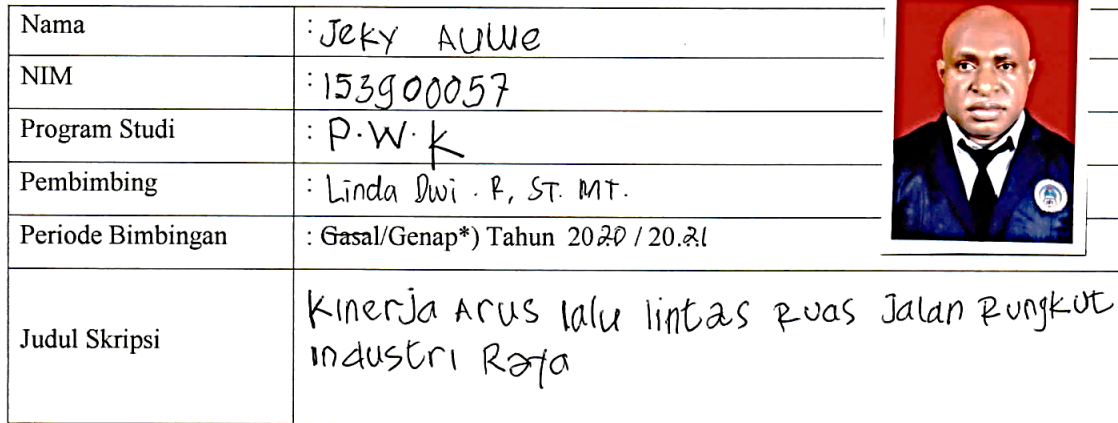 Nama : Jeky AUWe
NIM : 153900057
Program Studi : P.W.K
Pembimbing : Linda Dwi . R, ST. MT.
Periode Bimbingan : Gasal/Genap*) Tahun 2020 / 20.21
Judul Skripsi : Kinerja Arus lalu lintas Ruas Jalan Rungkut
industri Raya